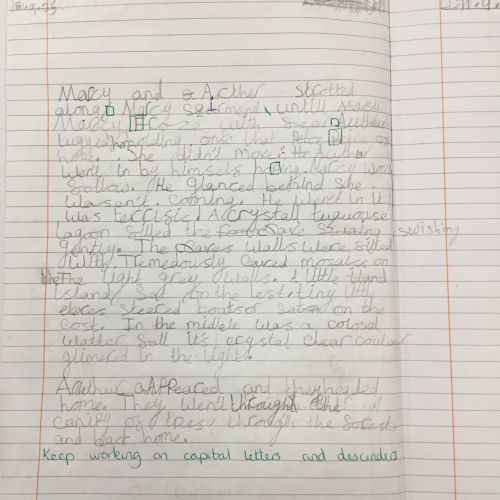 Marcy and Arther strotted
along Marcy untill Marcy
Marcy Froze with Arthur
tugged holding onto that
home. She didn't move. He
went in by himself hoping Marcy would
follow. He glanced behind she
wasn't coming. He went in it
was terrific. A crystall turquose
lagoon filled the cave swishing
gently. The caves walls were filled
with Tremedously carved mosaics on
The light grey walls. A little
island Sat on the left, tiny little
elaves steered boats on the
cost. In the middle was a colosal
watter fall it's crystal clear
glimered In the light.
Arthur appeared and they headed
home. They went through the
canipy of trees, through the forest
and back home.
Keep working on capital letters and descenders.